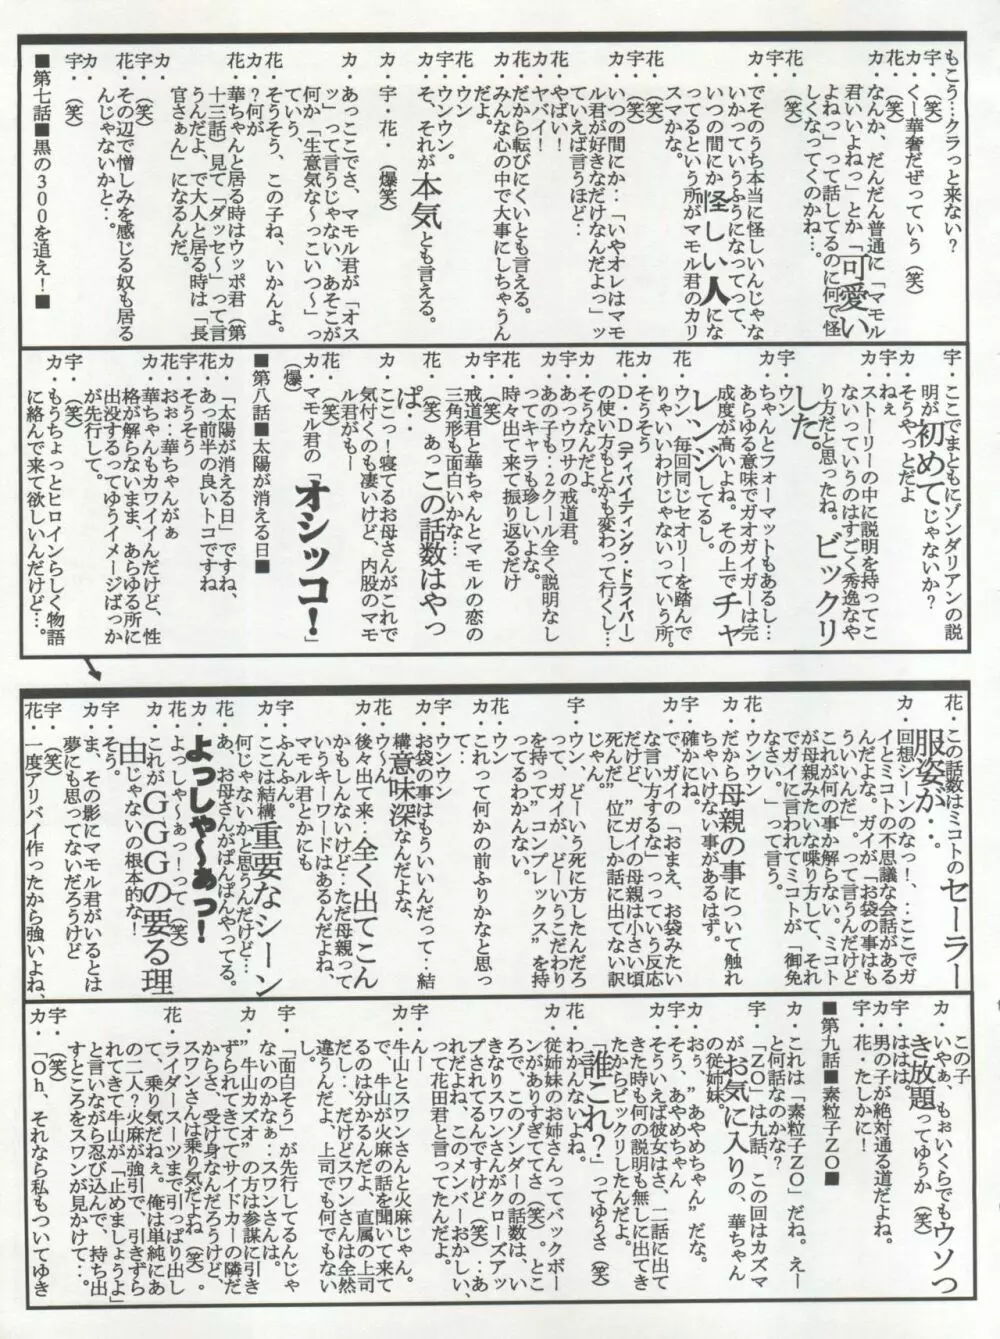 もこう…クラっと来ない?
宇・(笑)
カ・くー華奢だぜっていう (笑)
花・(笑)
カ・なんか、だんだん普通に「マモル
君いいよねっ」とか「可愛い
よねっ」って話してるのに何で怪
しくなってくのかね…。
花・(笑)
宇・
カ・でそのうち本当に怪しいんじゃな
いかっていうふうになってって、
いつの間にか怪しい人にな
ってるという所がマモル君のカリ
スマかな。
花・(笑)
宇・(笑)
カ・いつの間にか…「いやオレはマモ
ル君が好きなだけなんだよっ」ッ
ていえば言うほど…
花・やばい!
カ・ヤバイ!
花・だから転びにくいとも言える。
カ・みんな心の中で大事にしちゃうん
だよ。
花・ウン
宇・ウンウン。
カ・そ、それが本気とも言える。
宇・花・ (爆笑)
カ・あっここでさ、マモル君が「オス
ッ」って言うじゃない、あそこが
何か「生意気な～っこいつ～」っ
ていう、
花・そうそう、この子ね、いかんよ。
カ・?何が
花・華ちゃんと居る時はウッポ君 (第
十三話) 見て「ダッセ～」って言
うんだよ、で大人と居る時は「長
官さぁん」になるんだ。
カ・
宇・(笑)
花・その辺で憎しみを感じる奴も居る
んじゃないかと…。
カ・
宇・(笑)
■第七話■黒の300を追え!■
宇・ここでまともにゾンダリアンの説
明が初めてじゃないか?
カ・そうやっとだよ
宇・ねぇ
カ・ストーリーの中に説明を持ってこ
ないっていうのはすごく秀逸なや
り方だと思ったね。ビックリ
した。
宇・ウン
カ・ちゃんとフォーマットもあるし…
あらゆる意味でガオガイガーは完
成度が高いよね。その上でチャ
レンジしてるし。
花・ウン、毎回同じセオリーを踏んで
りゃいいわけじゃないっていう所。
カ・そうそう
花・D・D (ディバイディング・ドライバー)
の使い方もとかも変わって行くし…
カ・そうなんだよ。
宇・あっウワサの戒道君。
カ・あの子も…2クール全く説明なし
ってキャラも珍しいよな。
花・時々出て来て振り返るだけ
宇・(笑)
カ・戒道君と華ちゃんとマモルの恋の
三角形も面白いかな…
花・(笑) あっこの話数はやっ
ぱ…
カ・ここっ!寝てるお母さんがこれで
気付くのも凄いけど、内股のマモ
ル君がもー
花・(笑)
カ・マモル君の「オシッコ!」
(爆)
■第八話■太陽が消える日■
カ・「太陽が消える日」ですね、
花・あっ前半の良いトコですね
カ・そうそう
花・おぉ…華ちゃんがぁ
カ・華ちゃんもカワイイんだけど、性
格が解らないまま、あらゆる所に
出没するってゆうイメージばっか
が先行して。
宇・(笑)
カ・もうちょっとヒロインらしく物語
に絡んで来て欲しいんだけど…。
花・この話数はミコトのセーラー
服姿が・・・
カ・回想シーンのなっ!、…ここでガ
イとミコトの不思議な会話がある
んだよな。ガイが「お袋の事はも
ういいんだ」。って言うんだけど
これが何の事か解らない。ミコト
が母親みたいな喋り方して、それ
でガイに言われてミコトが「御免
なさい。」って言う。
花・
カ・だから母親の事について触れ
ちゃいけない事があるはず。
宇・確かにね。
カ・で、ガイの「おまえ、お袋みたい
な言い方するな」っっていう反応
だけど、〝ガイの母親は小さい頃
死んだ〟位にしか話に出てない訳
じゃん。
宇・ウン、どーいう死に方したんだろ
って、ガイが、どーいうこだわり
を持って〝コンプレックス〟を持
ってるわかんない。
花・ウン
カ・これって何かの前ふりかなと思っ
て…
宇・ウンウン
カ・お袋の事はもういいんだって…結
構意味深なんだよな、
花・ウ～ん
カ・後々出て来…全く出てこん
かもしんないけど…ただ母親って
いうキーワードはあるんだよね、
マモル君とかにも
宇・ふんふん。
カ・ここは結構重要なシーン
何じゃないかと思うんだけど…
花・あ、お母さんがぱんぱんやってる。
カ・よっしゃ～あっ!
花・よっしゃ～ぁっ!って (笑)
カ・これがGGGの要る理
由じゃないの根本的な!
宇・そう。
カ・ま、その影にマモル君がいるとは
夢にも思ってないだろうけど
宇・(笑)
花・一度アリバイ作ったから強いよね、
この子
カ・いやぁ、もぉいくらでもウソつ
き放題ってゆうか (笑)
宇・ははは。
カ・男の子が絶対通る道だよね。
宇・花・たしかに!
■第九話■素粒子ZO■
カ・これは「素粒子ZO」だね。えー
と何話なのかな?
宇・「ZO」は九話、この回はカズマ
がお気に入りの、華ちゃん
の従姉妹。
カ・おぅ、〝あやめちゃん〟だな。
宇・そう、あやめちゃん
カ・そういえば彼女はさ、二話に出て
きた時も何の説明も無しに出てき
たからビックリしたんだよ。
「誰これ?」ってゆうさ (笑)
花・わかんないよね。
カ・従姉妹のお姉さんってバックボー
ンがありすぎててさ (笑)。とこ
ろで、このゾンダーの話数は、い
きなりスワンさんがクローズアッ
プされてるんですけど (笑)…あ
れだよね、このメンバーおかしい、
って花田君と言ってたんだよ。
宇・んー
カ・牛山とスワンさんと火麻じゃん。
で、牛山が火麻の話を聞いて来て
るのは分かるんだよ、直属の上司
だし…、だけどスワンさんは全然
違うんだよ。上司でも何でもない
し。
宇・「面白そう」が先行してるんじゃ
ないのかなぁ…スワンさんは。
カ・〝牛山カズオ〟の方は参謀に引き
ずられてきててサイドカーの隣だ
からさ、受け身なんだろうけど、
スワンさんは乗り気だよね (笑)。
花・ライダースーツまで引っぱり出し
て、乗り気だねぇ。俺は単純にあ
の二人?火麻が強引で、引きずら
れてきて牛山が「止めましょうよ」
と言いながら忍び込んで、持ち出
すところをスワンが見かけて…。
宇・(笑)
カ・「Oh、それなら私もついてゆき